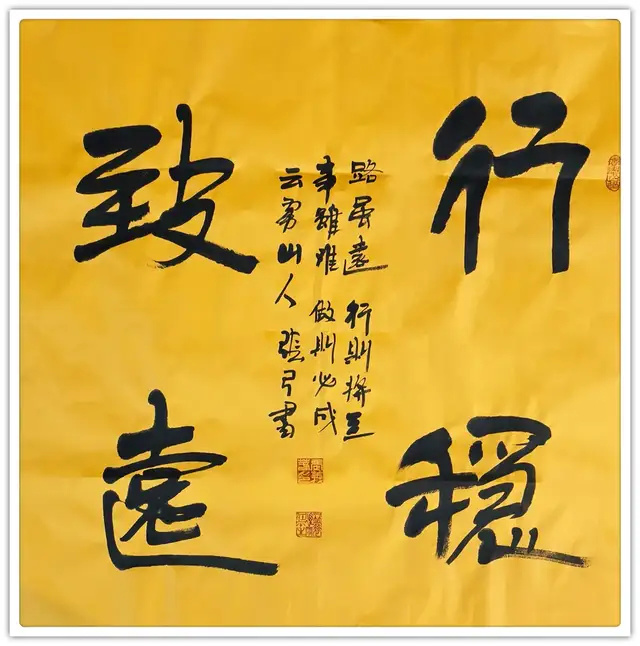 行穩
致遠
路虽遠 行則將至
事雖难 做則必成
云雾山人 張弓書